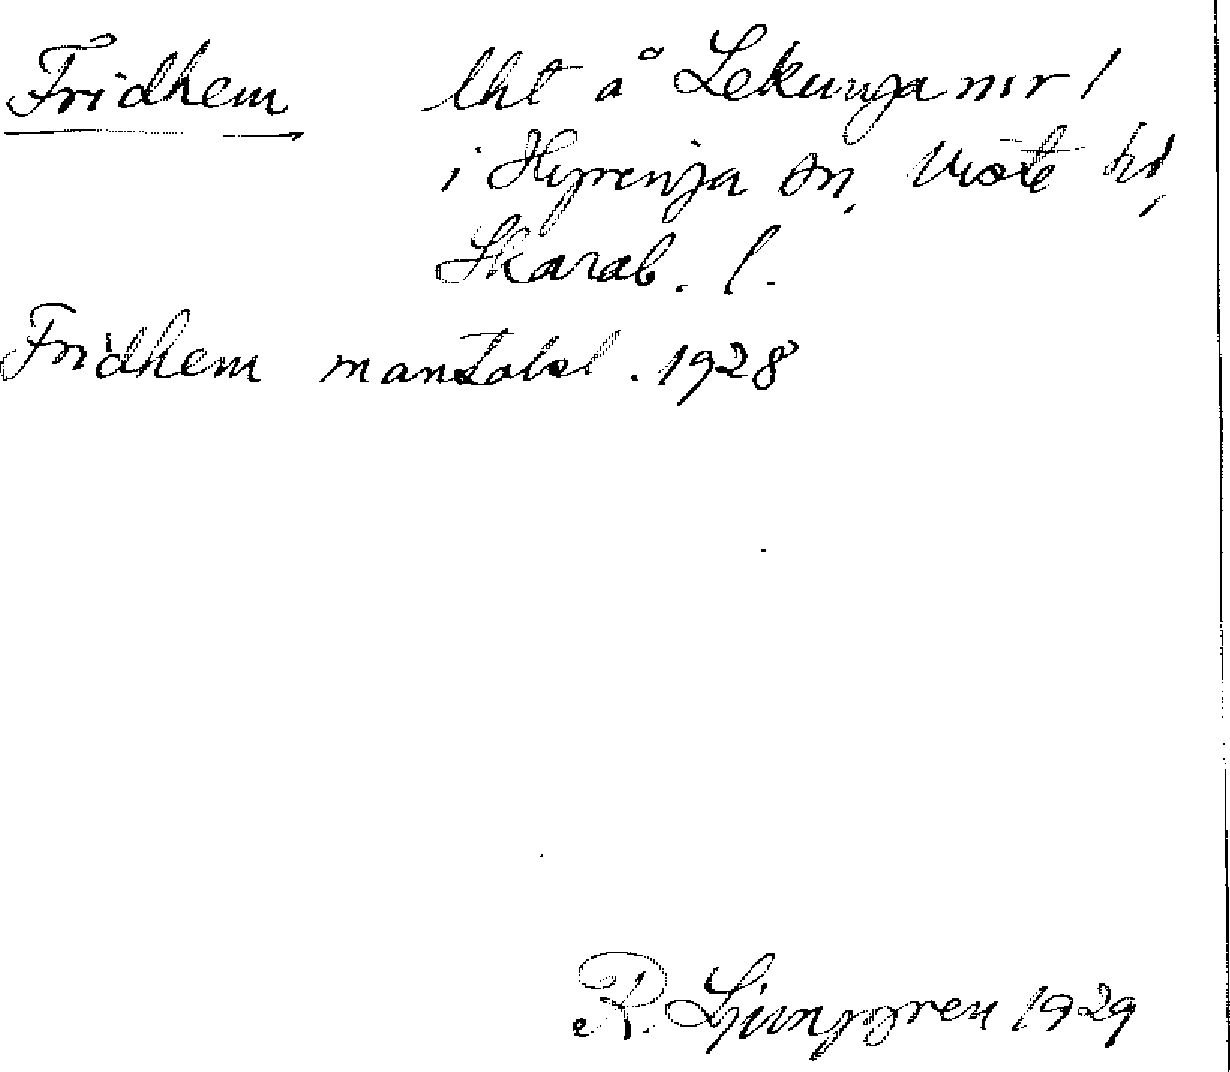 Fridhem lht å Lekunga nr 1
i Hyrenja sn, Viste hd,
Skarab. l.
Fridhem mantalsl. 1928
R. Ljunggren 1929